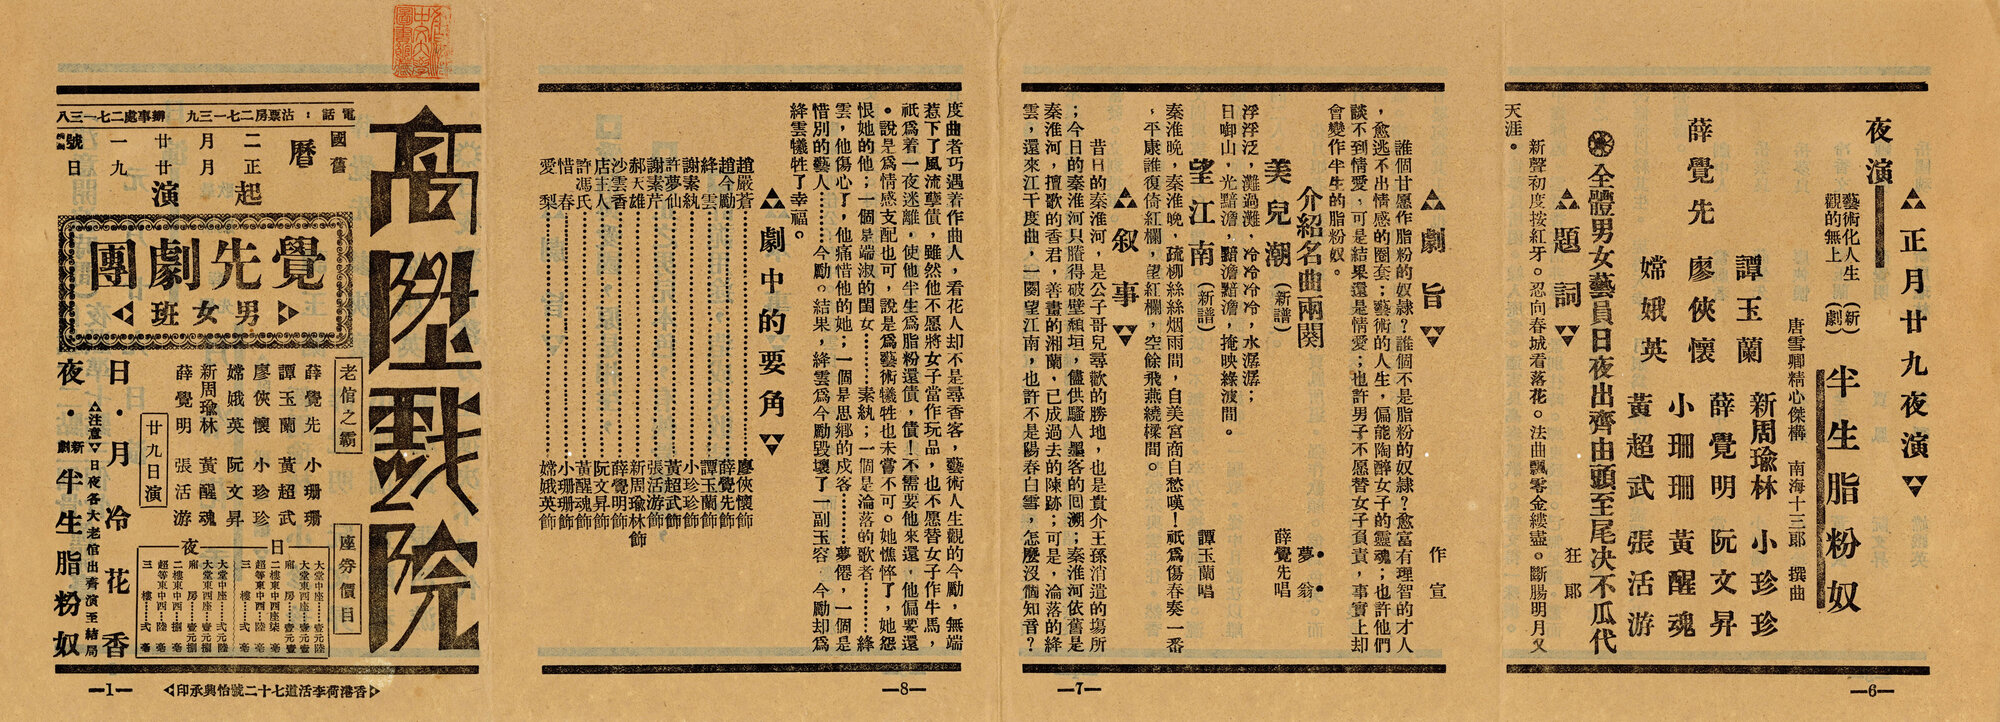 ▲▼正月廿九夜演▲▼
夜演
藝術化人生
觀的無上
(新劇)
半生脂粉奴
唐雪卿精心傑構 南海十三郎 撰曲
薛覺先
譚玉蘭
廖俠懷
嫦娥英
新周瑜林
薛覺明
小珊珊
黃超武
小珍珍
阮文昇
黃醒魂
張活游
全體男女藝員日夜出齊由頭至尾决不瓜代
▲▼題詞▲▼
狂郎
新聲初度按紅牙。忍向春城看落花。法曲飄零金縷盡。斷腸明月又
天涯。
—6—
▲▼劇旨▲▼
作宣
誰個甘愿作脂粉的奴隸?誰個不是脂粉的奴隸?愈富有理智的才人
,愈逃不出情感的圈套;藝術的人生,偏能陶醉女子的靈魂;也許他們
談不到情愛,可是結果還是情愛;也許男子不愿替女子負責,事實上却
會變作半生的脂粉奴。
介紹名曲兩闋
夢翁
美兒潮(新譜)
薛覺先唱
浮浮泛,灘過灘,冷冷冷冷,水潺潺;
日啣山,光黯澹,黯澹黯澹,掩映綠波間。
望江南(新譜)
譚玉蘭唱
秦淮晚,秦淮晚,疏柳絲絲烟雨間,自美宮商自愁嘆!祇爲傷春奏一番
,平康誰復倚紅欄,望紅欄,空餘飛燕繞樑間。
▲▼叙事▲▼
昔日的秦淮河,是公子哥兒尋歡的勝地,也是貴介王孫消遣的塲所
;今日的秦淮河只賸得破壁頹垣,儘供騷人墨客的囘溯;秦淮河依舊是
秦淮河,擅歌的香君,善畫的湘蘭,已成過去的陳跡;可是,淪落的絳
雲,還來江干度曲,一闋望江南,也許不是陽春白雪,怎麽沒個知音?
—7—
度曲者巧遇着作曲人,看花人却不是尋香客,藝術人生觀的今勵,無端
惹下了風流孽債,雖然他不愿將女子當作玩品,也不愿替女子作牛馬,
祇爲着一夜迷離,使他半生爲脂粉還債,債!不需要他來還,他偏要還
。說是爲情感支配也可,說是爲藝術犧牲也未嘗不可。她憔悴了,她怨
恨她的他;一個是端淑的閨女………素紈;一個是淪落的歌者………絳
雲,他傷心了,他痛惜他的她;一個是思鄉的戍客………夢僊,一個是
惜別的藝人………今勵。結果,絳雲爲今勵毀壞了一副玉容,今勵却爲
絳雲犧牲了幸福。
▲▼劇中的要角▲▼
趙嚴蒼………廖俠懷飾
趙今勵………薛覺先飾
絳雲………譚玉蘭飾
謝素紈………小珍珍飾
許夢仙………黃超武飾
謝素芹………張活游飾
郝天雄………新周瑜林飾
沙雲香………薛覺明飾
店主人………阮文昇飾
許馮氏………黃醒魂飾
惜春………小珊珊飾
愛梨………嫦娥英飾
—8—
高陞戲院
電話:沽票房二七一三九 辦事處二七一三八
國舊曆
二月廿一號
正月廿九日
起演
覺先劇團
男女班
老倌之霸
薛覺先 小珊珊
譚玉蘭 黃超武
廖俠懷 小珍珍
嫦娥英 阮文昇
新周瑜林 黃醒魂
薛覺明 張活游
廿九日演
座券價目
日
大堂中座……壹元陸
大堂東西座…壹元壹
廂房……壹元
二樓東中西…座柒
超等東中西…陸毫
三樓……弍毫
夜
大堂中座……弍元陸
大堂東西座…壹元陸
廂房……壹元捌
二樓東中西…捌毫
超等東中西…陸毫
三樓……弍毫
日・月冷花香
▲注意▼日夜各大老倌出齊演至結局
夜・新劇 半生脂粉奴
香港荷李活道七十二號怡興承印
—1—